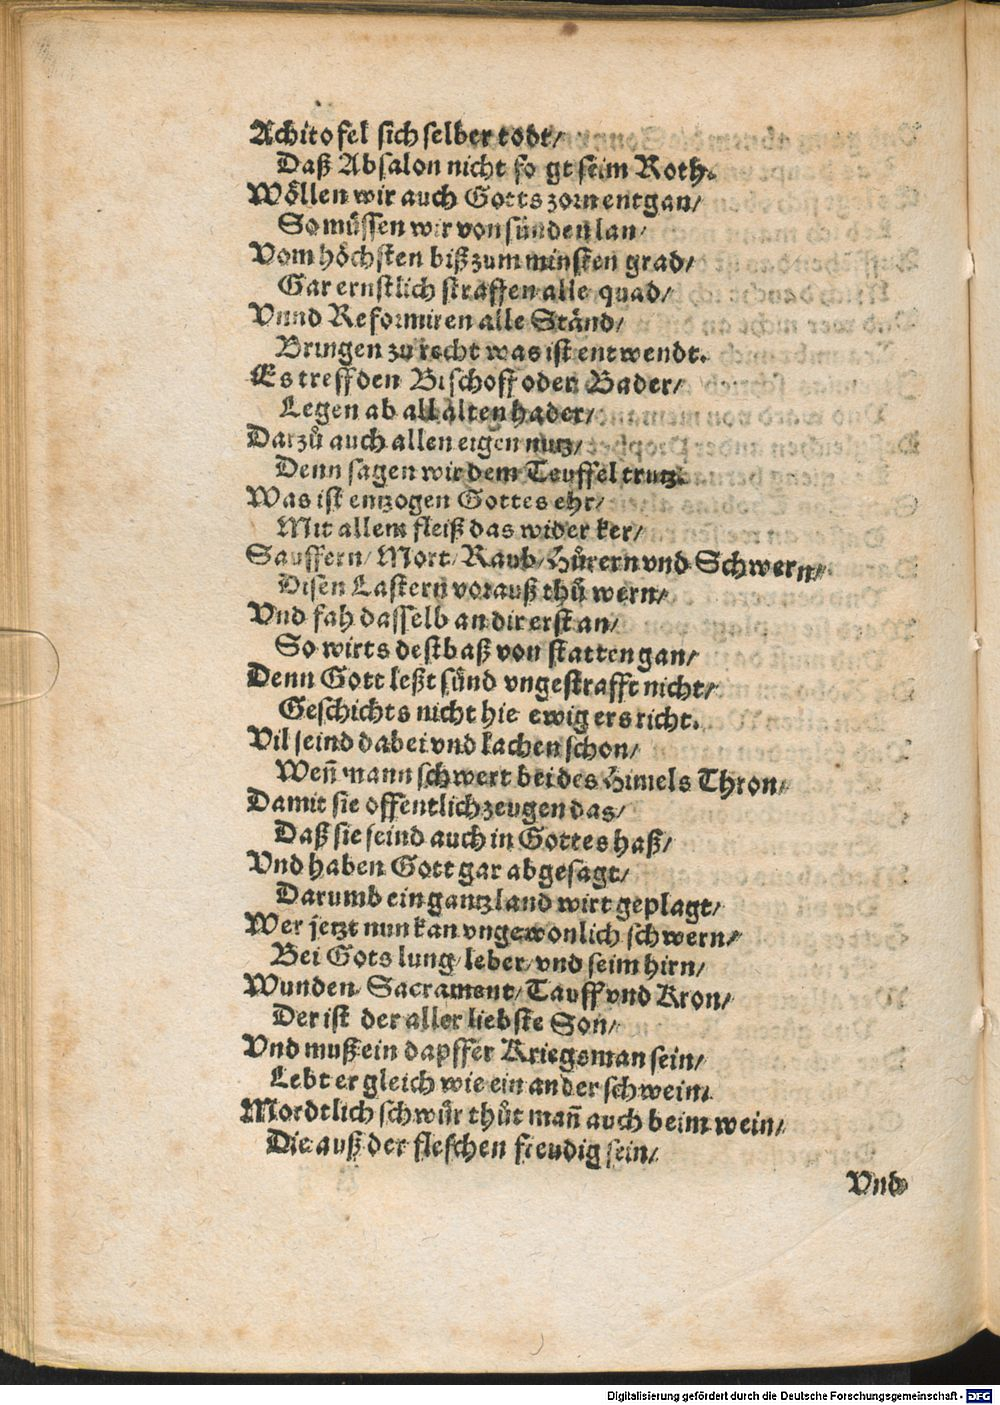 Achitofel sich selber todt/
Daß Absalon nicht fo gt seim Roth.
Wöllen wir auch Gotts zorn entgan/
So müssen wir von sünden lan/
Vom höchsten biß zum minsten grad/
Gar ernstlich straffen alle quad/
Vnnd Reformiren alle Ständ/
Bringen zu recht was ist entwendt.
Es treff den Bischoff oder Bader/
Legen ab all alten hader/
Darzů auch allen eigen nutz/
Denn sagen wir dem Teuffel trutz.
Was ist entzogen Gottes ehr/
Mit allem fleiß das wider ker/
Sauffern/ Mort/ Raub/ Hůrern vnd Schwern/
Disen Lastern vorauß thů wern/
Vnd fah dasselb an dir erst an/
So wirts destbaß von statten gan/
Denn Gott leßt sünd vngestrafft nicht/
Geschichts nicht hie ewig ers richt.
Vil seind dabei vnd lachen schon/
Weñ mann schwert bei des Himels Thron/
Damit sie offentlich zeugen das/
Daß sie seind auch in Gottes haß/
Vnd haben Gott gar abgesagt/
Darumb ein gantz land wirt geplagt/
Wer jetzt nun kan vngewonlich schwern/
Bei Gots lung/ leber/ vnd seim hirn/
Wunden/ Sacrament/ Tauff vnd Kron/
Der ist der aller liebste Son/
Vnd muß ein dapffer Kriegsman sein/
Lebt er gleich wie ein ander schwein/
Mordtlich schwůr thůt mañ auch beim wein/
Die auß der fleschen freudig sein/
Vnd
Digitalisierung gefördert durch die Deutsche Forschungsgemeinschaft - DFG